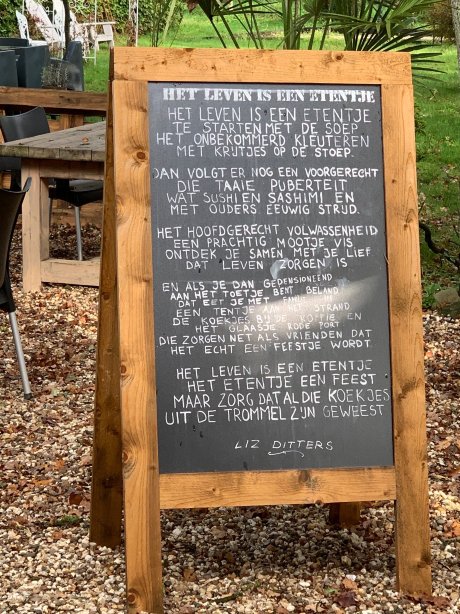 HET LEVEN IS EEN ETENTJE
HET LEVEN IS EEN ETENTJE
TE STARTEN MET DE SOEP
HET ONBEKOMMERD KLEUTEREN
MET KRIJTJES OP DE STOEP.
DAN VOLGT ER NOG EEN VOORGERECHT
DIE TAAIE PUBERTEIT
WAT SUSHI EN SASHIMI EN
MET OUDERS EEUWIG STRIJD.
HET HOOFDGERECHT VOLWASSENHEID
EEN PRACHTIG MOOTJE VIS
ONTDEK JE SAMEN MET JE LIEF
DAT LEVEN ZORGEN IS
EN ALS JE DAN GEDENSIONEEND
AAN HET TOETJE BENT BELAND
DAT EET JE MET FAMILIE IN
EEN TENTJE AAN HET STRAND
DE KOEKJES BIJ DE KOFFIE EN
HET GLAASJE RODE PORT
DIE ZORGEN NET ALS VRIENDEN DAT
HET ECHT EEN FEESTJE WORDT.
HET LEVEN IS EEN ETENTJE
HET ETENTJE EEN FEEST
MAAR ZORG DAT AL DIE KOEKJES
UIT DE TROMMEL ZIJN GEWEEST
LIZ DITTERS